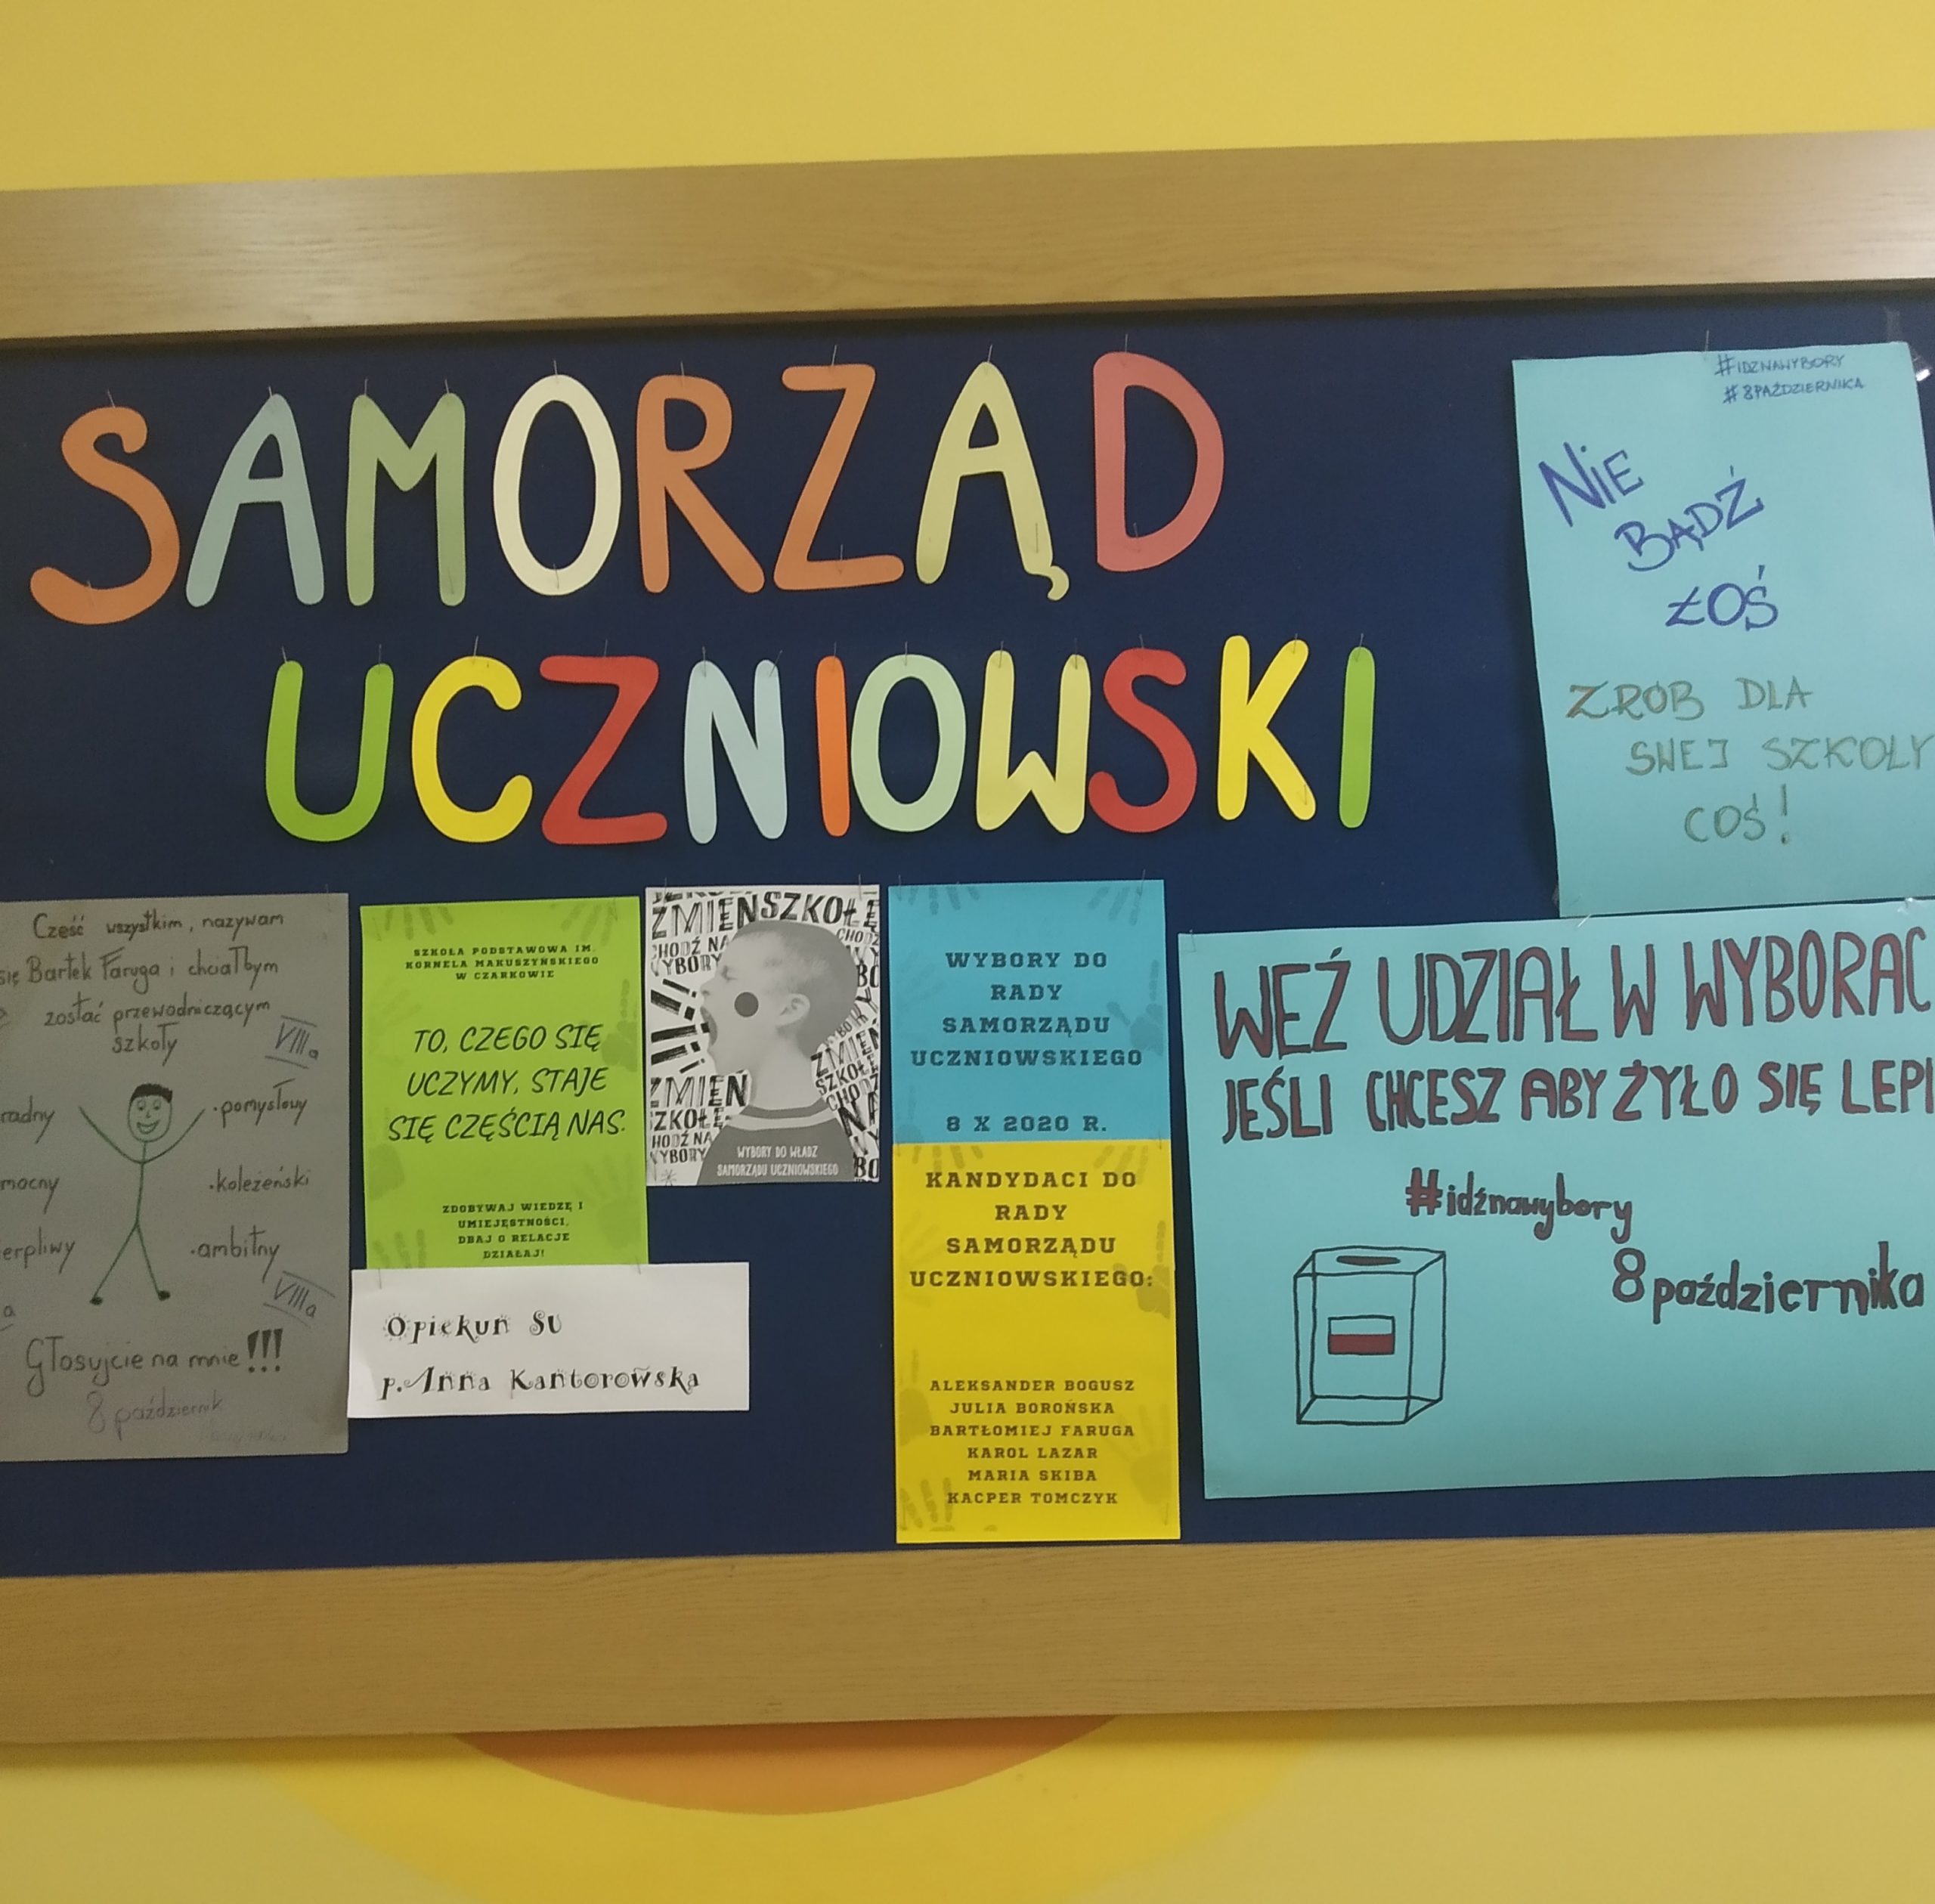 SAMORZĄD
UCZNIOWSKI
#IDZNAWYBORY
#8PAŹDZIERNIKA
NIE
BĄDŹ
ŁOŚ
ZRÓB DLA
SWEJ SZKOLY
COŚ!
Cześć wszystkim, nazywam
się Bartek Faruga i chciałbym
zostać przewodniczącym
szkoły
VIIIa
radny
·pomysłowy
mocny
·koleżeński
erpliwy
·ambitny
VIIIa
a
Głosujcie na mnie!!!
8 październik
SZKOŁA PODSTAWOWA IM.
KORNELA MAKUSZYŃSKIEGO
W CZARKOWIE
TO, CZEGO SIĘ
UCZYMY, STAJE
SIĘ CZĘŚCIĄ NAS.
ZDOBYWAJ WIEDZĘ I
UMIEJĘSTNOŚCI,
DBAJ O RELACJE
DZIAŁAJ!
Opiekun SU
p. Anna Kantorowska
ZMIEŃ SZKOŁĘ
CHODŹ NA
WYBORY
ZMIEŃ
SZKOŁĘ
CHODŹ NA
WYBORY
ZMIEŃ
SZKOŁĘ
CHODŹ
NA
WYBORY DO WŁADZ
SAMORZĄDU UCZNIOWSKIEGO
WYBORY DO
RADY
SAMORZĄDU
UCZNIOWSKIEGO
8 X 2020 R.
KANDYDACI DO
RADY
SAMORZĄDU
UCZNIOWSKIEGO:
ALEKSANDER BOGUSZ
JULIA BOROŃSKA
BARTŁOMIEJ FARUGA
KAROL LAZAR
MARIA SKIBA
KACPER TOMCZYK
WEŹ UDZIAŁ W WYBORAC
JEŚLI CHCESZ ABY ŻYŁO SIĘ LEPI
#idźnawybory
8 października